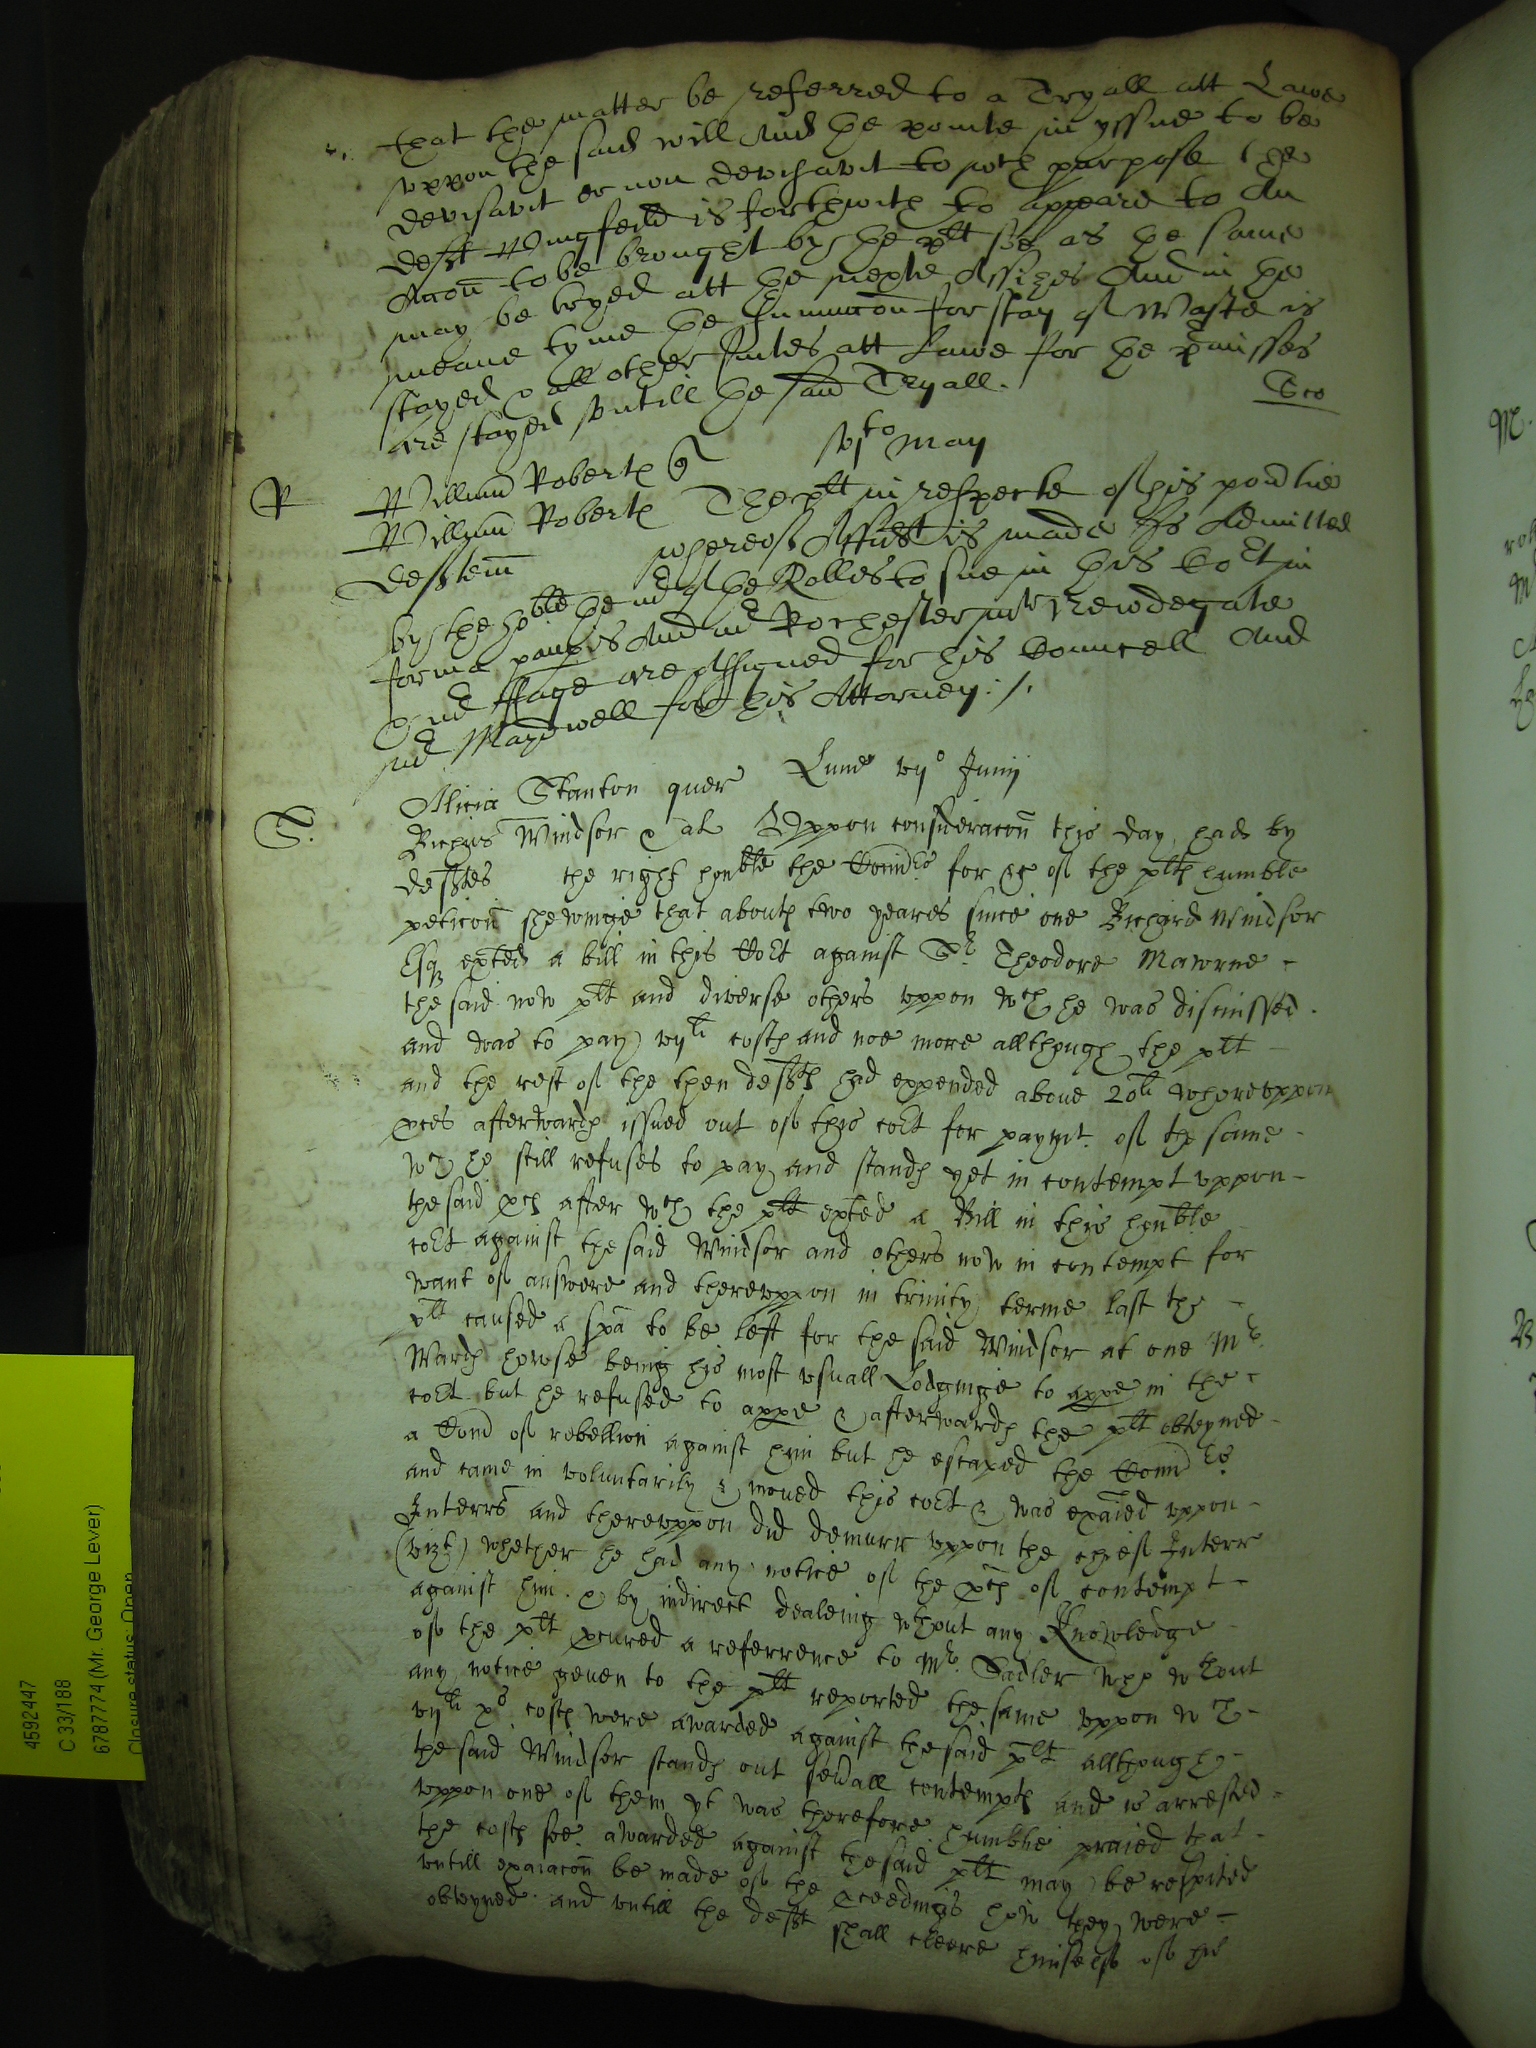 that the matter be referred to a Tryall att Lawe
vppon the said will And the pointe in yssue to be
devisavit or non devisavit to wch purpose the
defft Wingfeild is forthwith to appeare to An
Accon to be brought by the plt soe as the same
may be tryed att the nexte Assizes And in the
meane tyme the Iniunccon for stay of Waste is
stayed & all other suites att Lawe for the pmisses
are stayed vntill the said Tryall.
vjto May
R
William Robertes q
William Robertes The plt in respecte of his povtie
defftem whereof Affidt is made Is Admitted
by the hoble the mr of the Rolles to sue in this Cort in
forma paupis And mr Rochester mr Newdegate
& mr Page are Assigned for his Councell And
mr Maydwell for his Attorney ./.
Lune vijo Junij
S.
Alicia Stanton quer
Richus Windsor & al Vppon consideracon this day had by
defftes the right honble the Comrs for &c of the pltes humble
peticon shewinge that aboute two yeares since one Richard Windsor
Esq exhted a bill in this Cort against Sr. Theodore Mawrne -
the said now plt and diverse others vppon wch he was dismissed.
and was to pay vijli costes and noe more allthough the plt -
and the rest of the then deffts had expended above 20li wherevppon
pces afterwardes issued out of this cort for paymt. of the same -
wch he still refuses to pay and standes yet in contempt vppon -
the said pces after wch the plt exhted a Bill in this honble -
cort against the said Windsor and others now in contempt for
want of answere and therevppon in trinity terme last the -
plt caused a spa to be left for the said Windsor at one Mr.
Wardes howse being his most vsuall Lodginge to appe in the -
cort but he refused to appe & afterwardes the plt obteyned -
a Comn of rebellion against him but he escaped the Comrs
and came in voluntarily & moued this cort & was exaied vppon -
Interrs and therevppon did demurr vppon the chief Interr
(vizt) whether he had any notice of the pces of contempt -
against him. & by indirect dealeing wthout any Knowledge -
of the plt pcured a referrence to Mr. Sadler who wthout
any notice geuen to the plt reported the same vppon wch -
vijli xs costes were awarded against the said plt allthough -
the said Windsor standes out seuall contemptes and is arrested -
vppon one of them yt was therefore humblie praied that -
the costes soe awarded against the said plt may be respited
vntill exaiacon be made of the pceedings how they were -
obteyned and vntill the defft shall cleere himself of his
4592447
C 33/188
6787774 (Mr. George Lever)
Closure status: Open